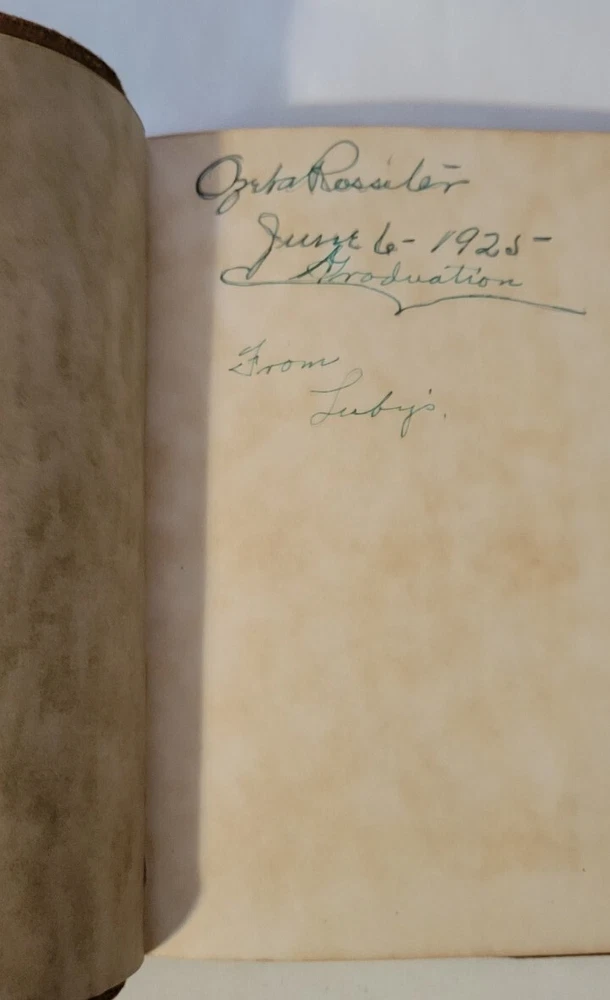 Ozeta Rossiter
June 6 - 1925 -
Graduation
From
Luby's.